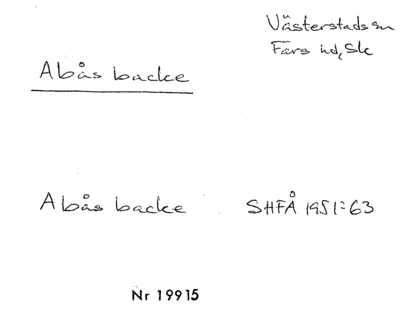 Västerstads sn
Färs hd, Sk
Abås backe
Abås backe SHFÅ 1951:63
Nr 19915